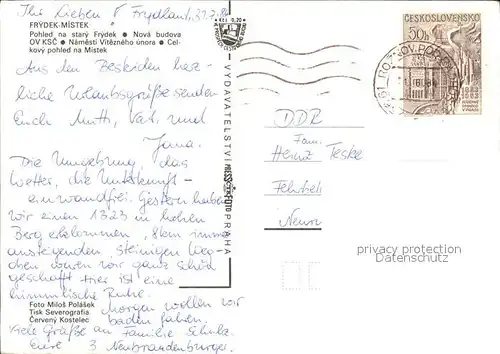 Ihr Lieben!
Frydland, 31.7.84
FRÝDEK-MÍSTEK
Pohled na starý Frýdek ● Nová budova
OV KSČ ● Náměstí Vítězného února ● Cel-
kový pohled na Místek
Aus den Beskiden herz-
liche Urlaubsgrüße senden
Euch Mutti, Vati und
Jana.
Die Umgebung, das
Wetter, die Unterkunft -
einwandfrei. Gestern haben
wir einen 1323 m hohen
Berg erklommen, 8km immer
ansteigenden, steinigen Weg-
chen waren wir ganz schön
geschafft. Hier ist eine
himmlische Ruhe.
Morgen wollen wir
baden fahren.
Foto Miloš Polášek
Tisk Severografia
Červený Kostelec
Viele Grüße an Familie
Eure 3 Neubrandenburger
VYDAVATELSTVÍ PRESSFOTO PRAHA
Kčs 0,20
ČESKOSLOVENSKO
50h
ROŽNOV POD RADH
DDR
Fam.
Heinz Teske
Neuru
privacy protection
Datenschutz